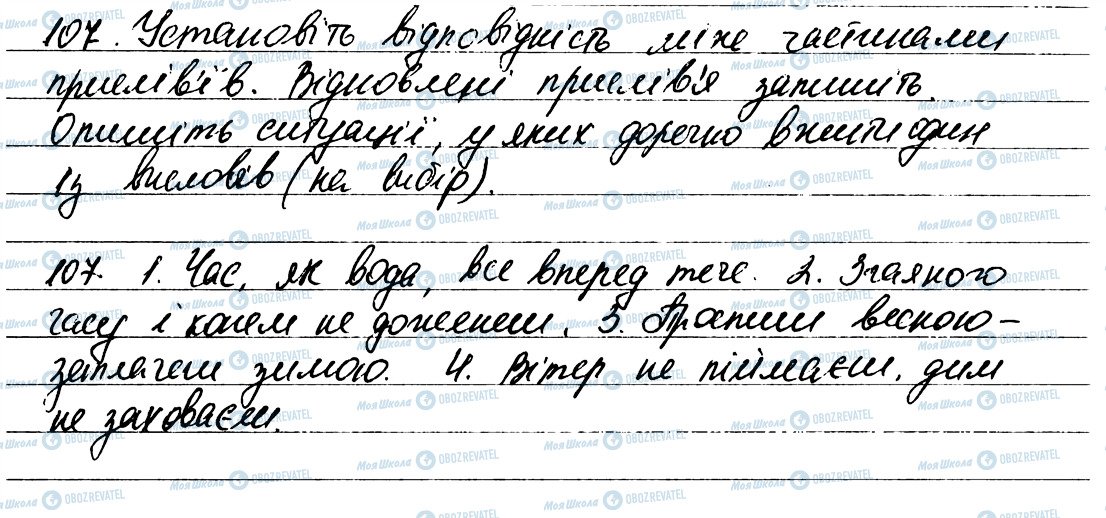 107. Установіть відповідність між частинами
прислів'їв. Відновлені прислів'я запишіть.
Опишіть ситуації, у яких доречно вжити один
із висловів (на вибір).
107. 1. Час, як вода, все вперед тече. 2. Згаяного
часу і конем не доженеш. 3. Проспиш весною –
заплачеш зимою. 4. Вітер не піймаєш, дим
не заховаєш.